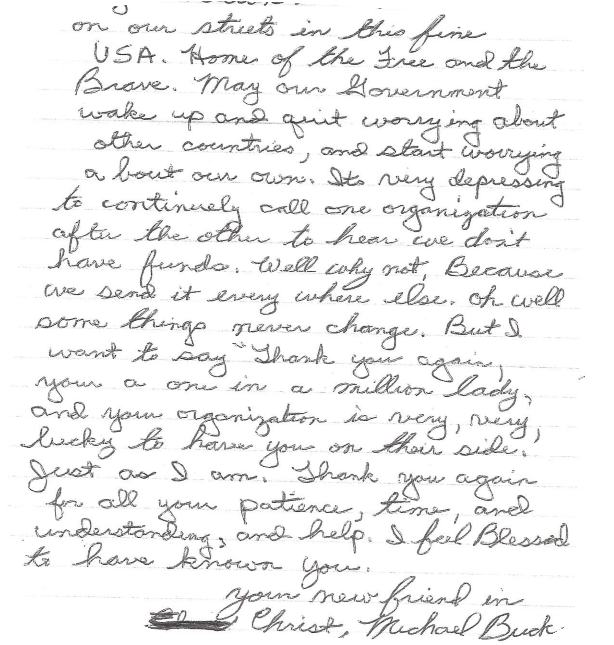 on our streets in this fine
USA. Home of the Free and the
Brave. May our Government
wake up and quit worrying about
other countries, and start worrying
a bout our own. Its very depressing
to continuely call one organization
after the other to hear we don't
have funds. Well why not, Because
we send it every where else. Oh well
some things never change. But I
want to say "Thank you again,
your a one in a million lady,
and your organization is very, very,
lucky to have you on their side.
Just as I am. Thank you again
for all your patience, time, and
understanding, and help. I feel Blessed
to have known you.
your new friend in
Christ, Michael Buck